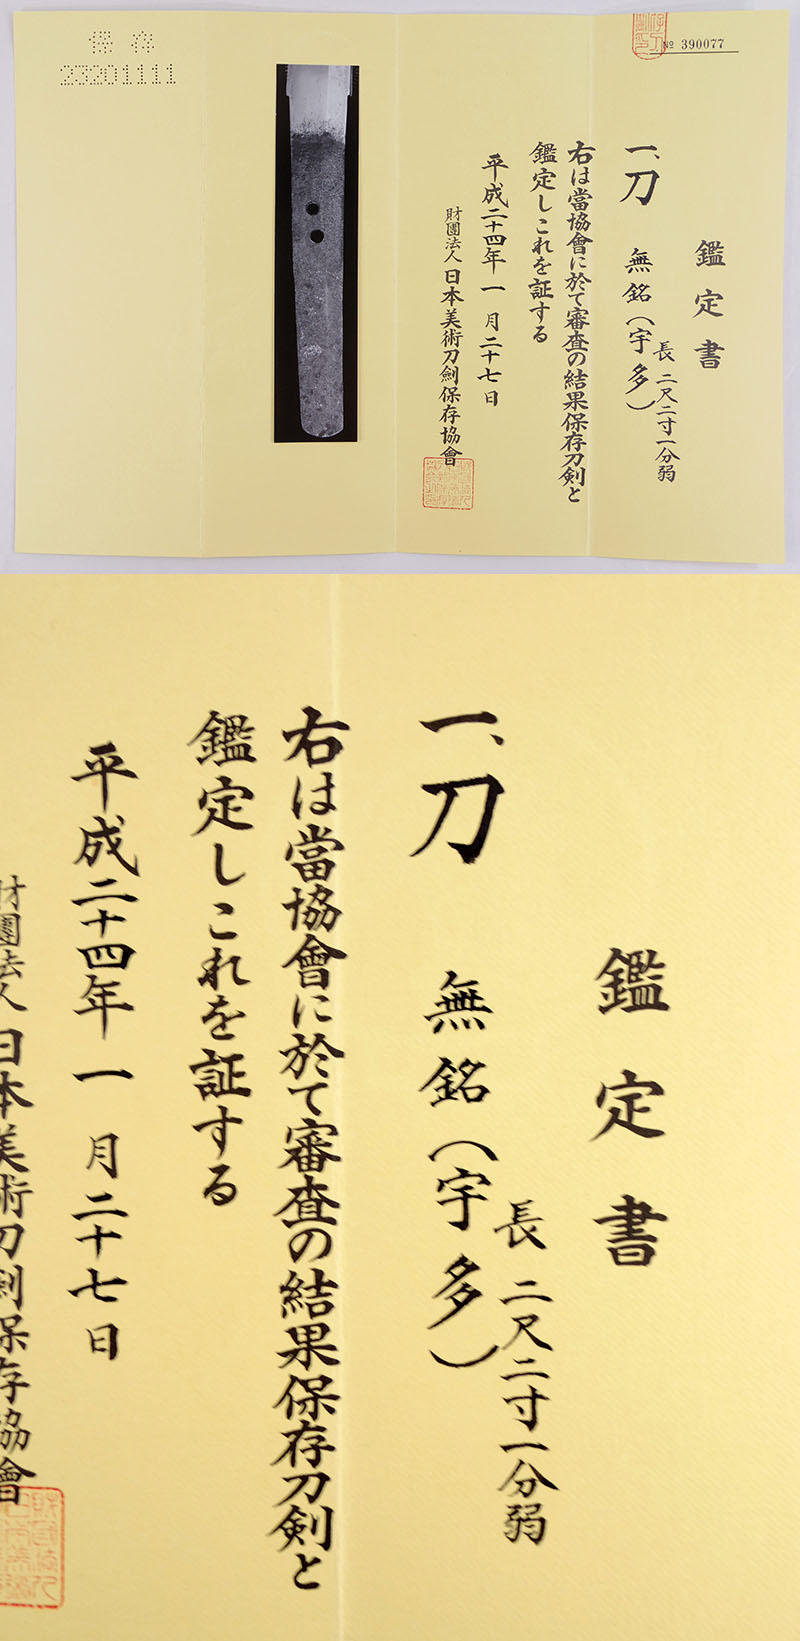 № 390077
鑑定書
一、刀 無銘(宇多)
長二尺二寸一分弱
右は當協會に於て審査の結果保存刀剣と
鑑定しこれを証する
平成二十四年一月二十七日
財團法人日本美術刀劍保存協會
保存
23201111
鑑定書
一、刀 無銘(宇多)
長二尺二寸一分弱
右は當協會に於て審査の結果保存刀剣と
鑑定しこれを証する
平成二十四年一月二十七日
財團法人日本美術刀劍保存協會